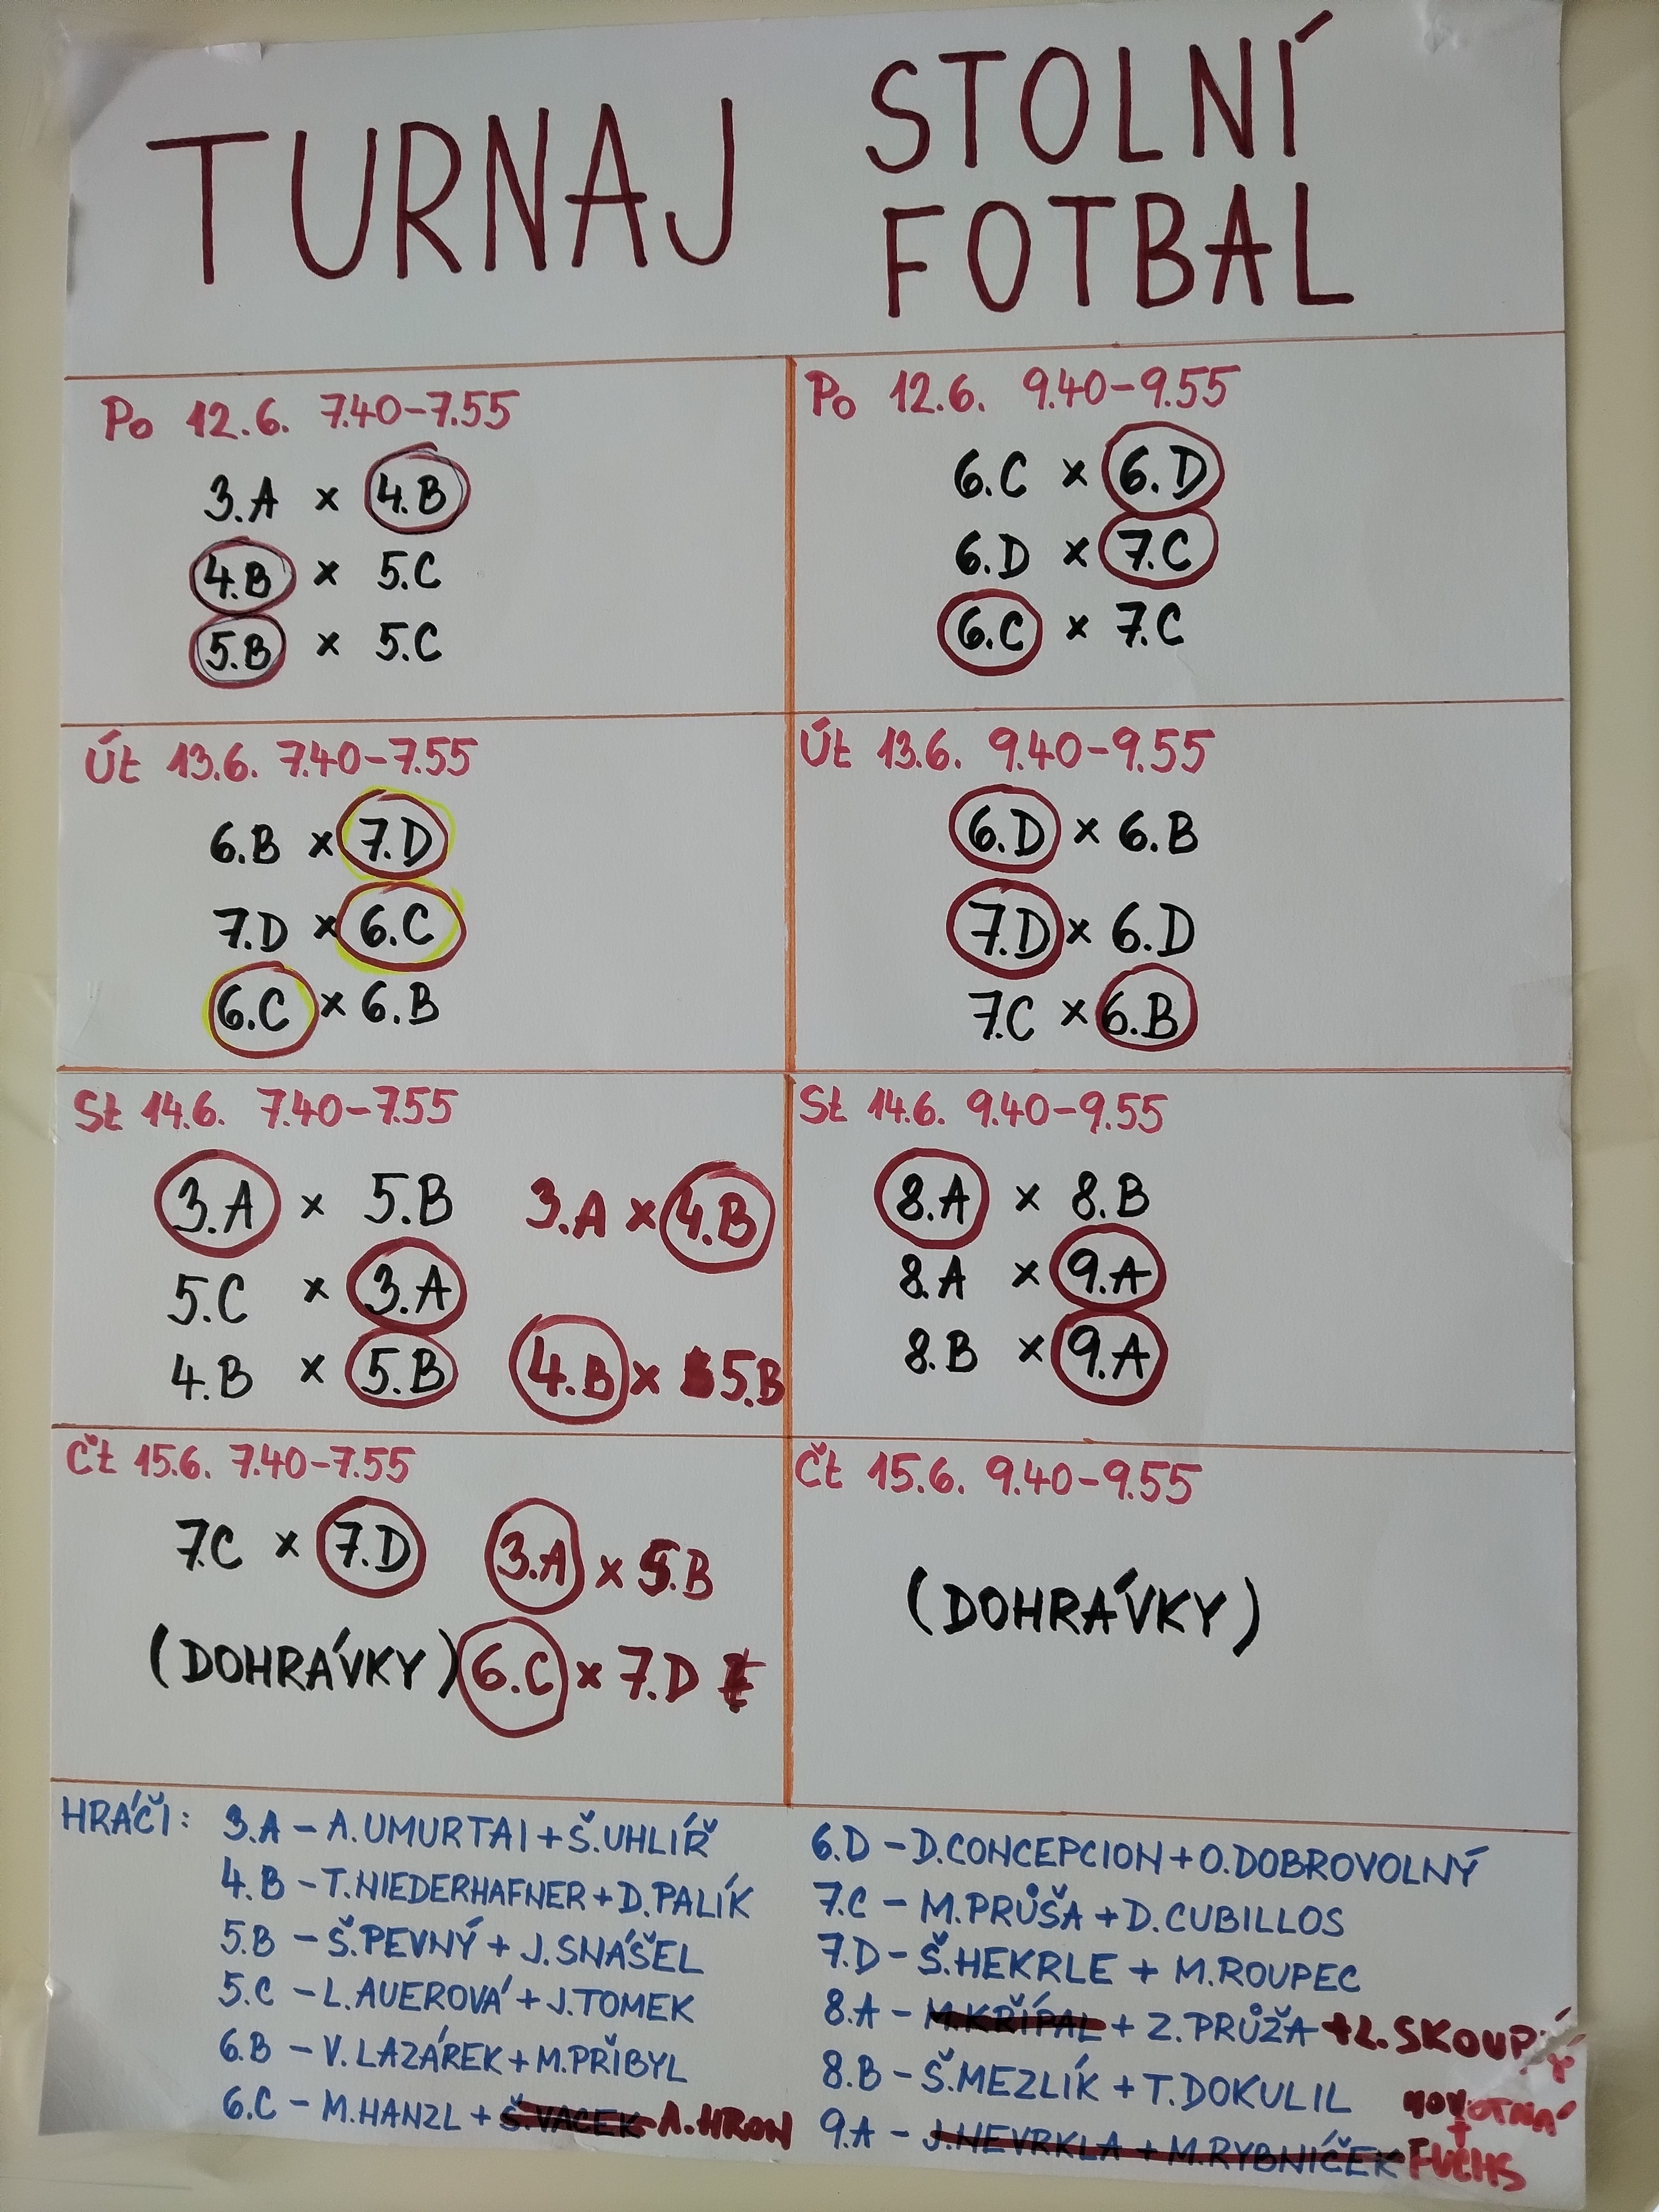 TURNAJ STOLNÍ
FOTBAL
Po 12.6. 7.40-7.55
3.A x 4.B
4.B x 5.C
5.B x 5.C
Po 12.6. 9.40-9.55
6.C x 6.D
6.D x 7.C
6.C x 7.C
Út 13.6. 7.40-7.55
6.B x 7.D
7.D x 6.C
6.C x 6.B
Út 13.6. 9.40-9.55
6.D x 6.B
7.D x 6.D
7.C x 6.B
St 14.6. 7.40-7.55
3.A x 5.B 3.A x 4.B
5.C x 3.A
4.B x 5.B 4.B x 5.B
St 14.6. 9.40-9.55
8.A x 8.B
8.A x 9.A
8.B x 9.A
Čt 15.6. 7.40-7.55
7.C x 7.D 3.A x 5.B
(DOHRÁVKY) 6.C x 7.D
Čt 15.6. 9.40-9.55
(DOHRÁVKY)
HRÁČI: 3.A - A.UMURTAI + Š.UHLÍŘ
4.B - T.NIEDERHAFNER + D.PALÍK
5.B - Š.PEVNÝ + J.SNÁŠEL
5.C - L.AUEROVÁ + J.TOMEK
6.B - V.LAZÁREK + M.PŘIBYL
6.C - M.HANZL + Š.VACEK A.HRON
6.D - D.CONCEPCION + O.DOBROVOLNÝ
7.C - M.PRŮŠA + D.CUBILLOS
7.D - Š.HEKRLE + M.ROUPEC
8.A - M.KŘÍPAL + Z.PRŮŽA + L.SKOUPÝ
8.B - Š.MEZLÍK + T.DOKULIL
9.A - J.NEVRKLA + M.RYBNÍČEK NOVOTNÁ + FUCHS